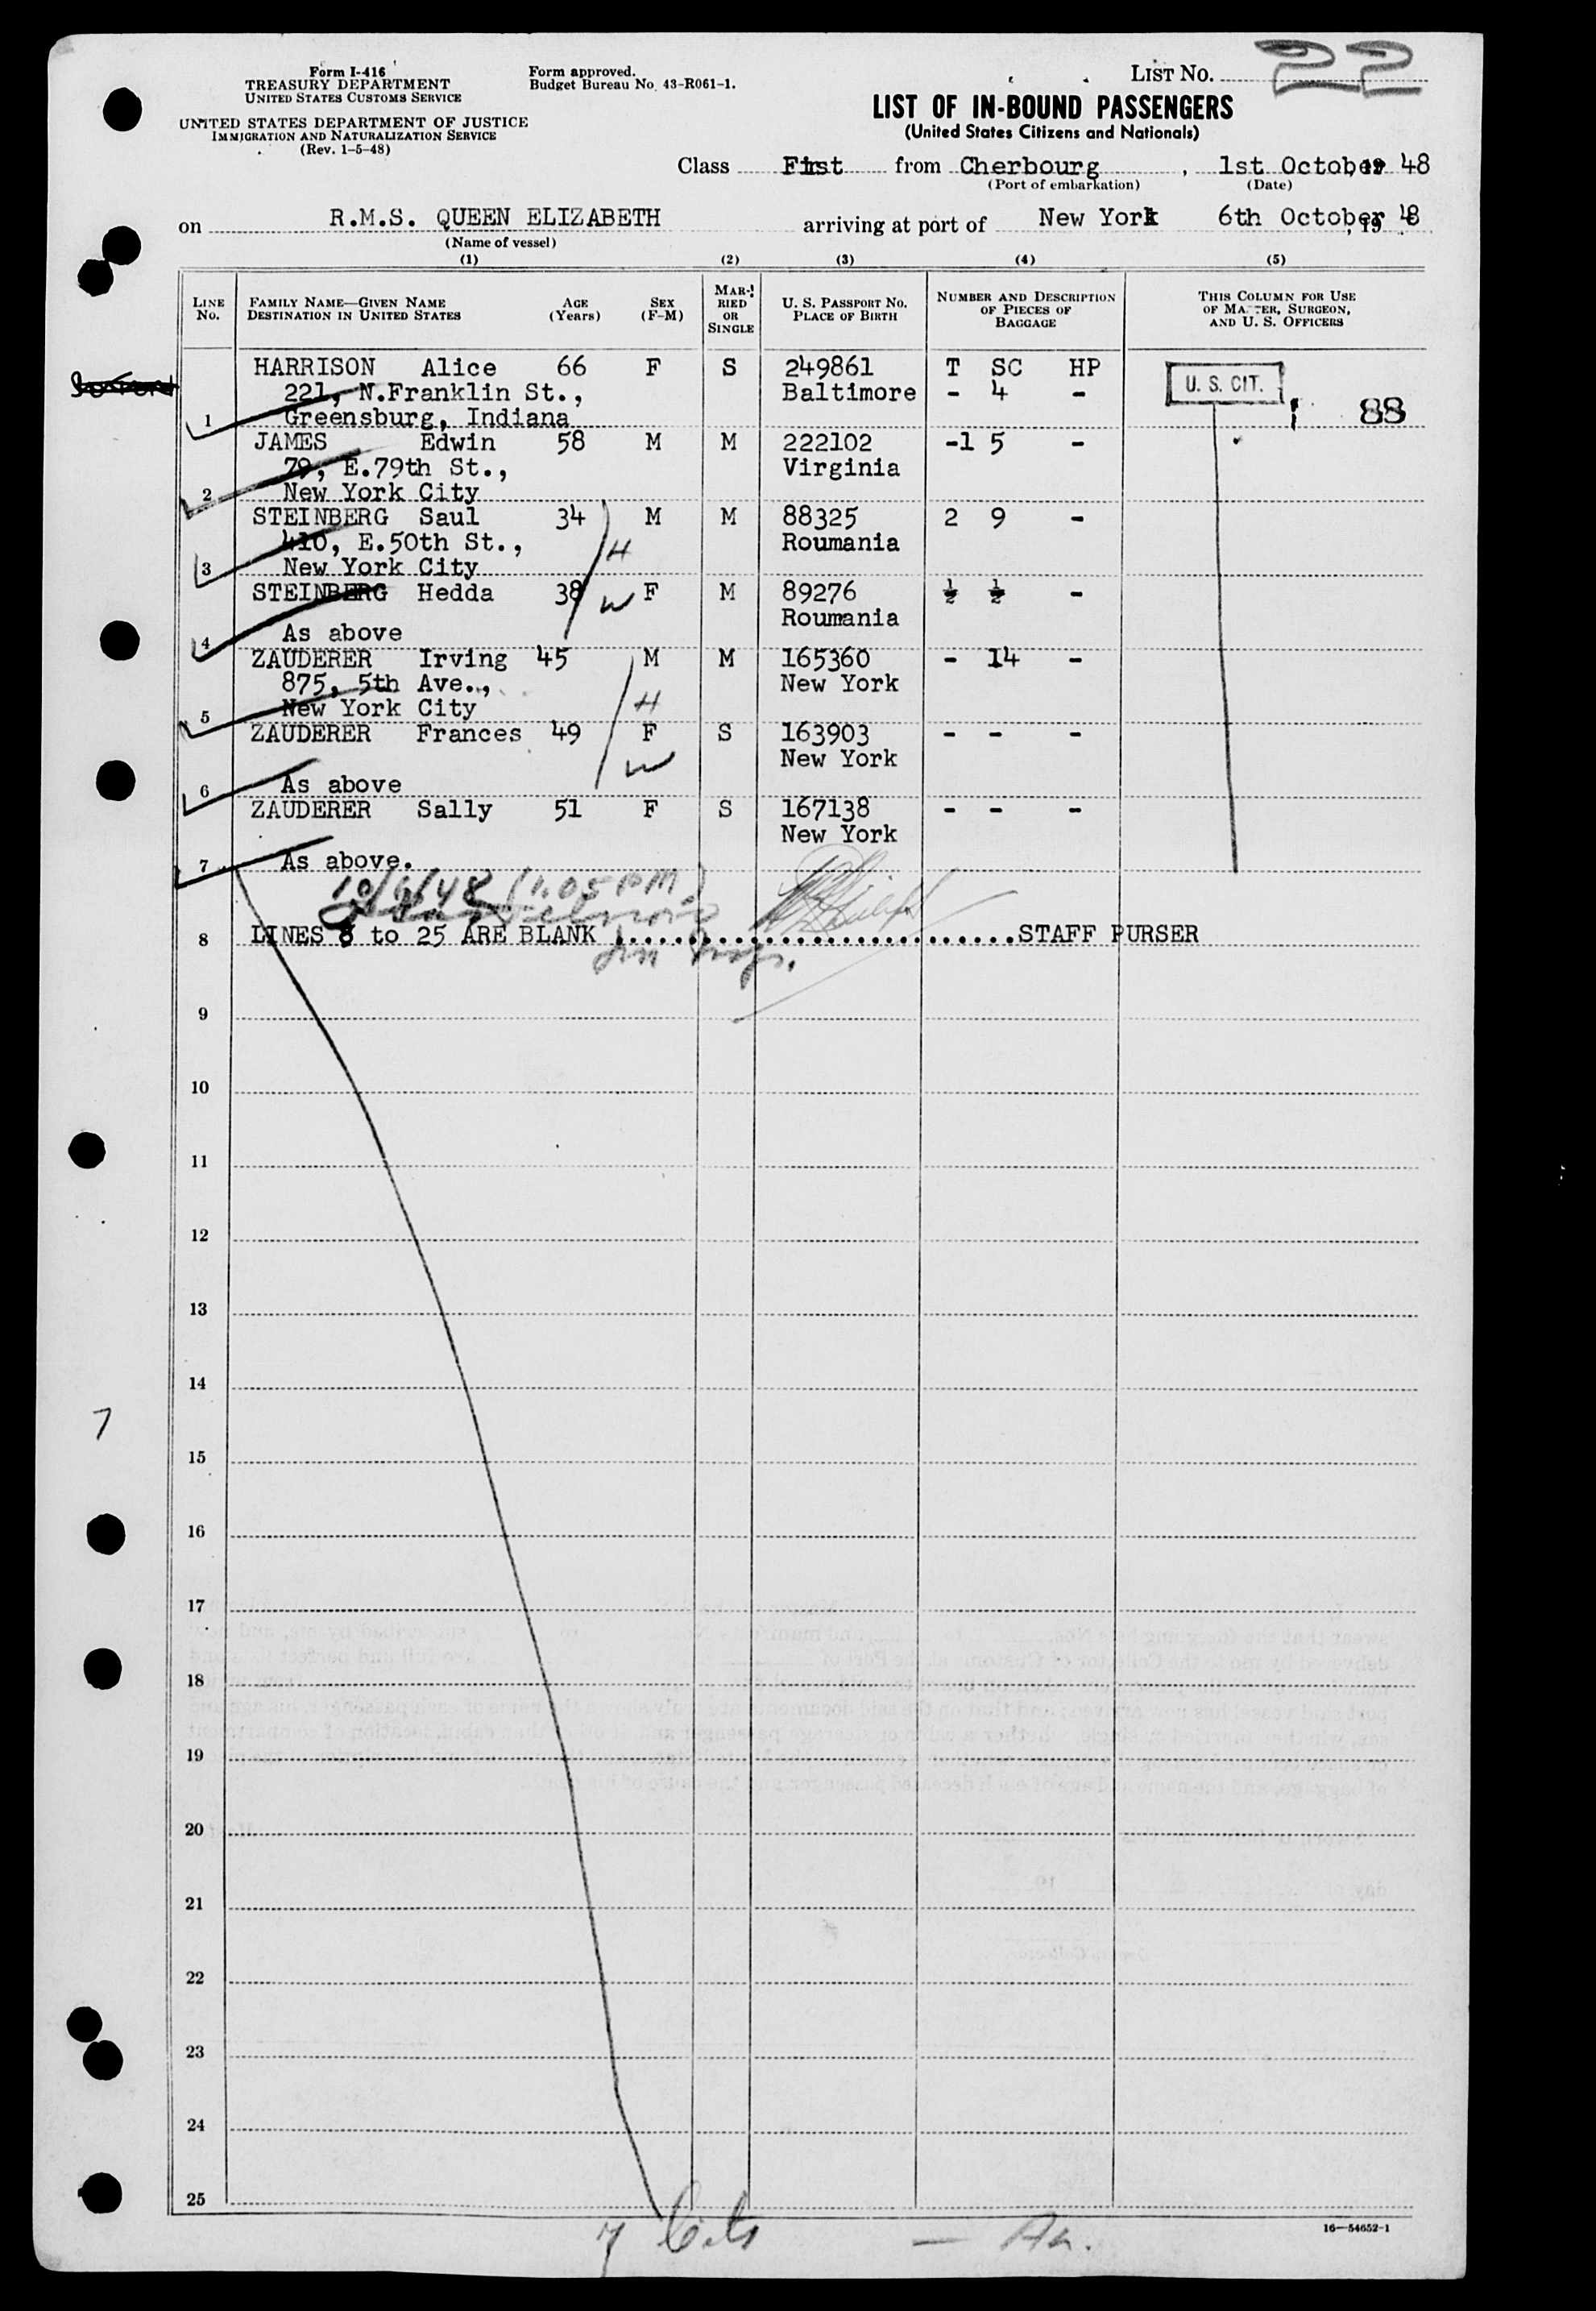 Form I-416
TREASURY DEPARTMENT
UNITED STATES CUSTOMS SERVICE
UNITED STATES DEPARTMENT OF JUSTICE
IMMIGRATION AND NATURALIZATION SERVICE
(Rev. 1-5-48)
Form approved.
Budget Bureau No. 43-R061-1.
LIST NO. 22
LIST OF IN-BOUND PASSENGERS
(United States Citizens and Nationals)
Class First from Cherbourg, 1st October, 19 48
(Port of embarkation) (Date)
on R.M.S. QUEEN ELIZABETH arriving at port of New York 6th October, 19 48
(Name of vessel)
(1) (2) (3) (4) (5)
LINE NO. FAMILY NAME—GIVEN NAME DESTINATION IN UNITED STATES AGE (Years) SEX (F-M) MARRIED OR SINGLE U. S. PASSPORT NO. PLACE OF BIRTH NUMBER AND DESCRIPTION OF PIECES OF BAGGAGE THIS COLUMN FOR USE OF MASTER, SURGEON, AND U. S. OFFICERS
HARRISON Alice 66 F S 249861 T SC HP U. S. CIT.
221, N.Franklin St., Baltimore - 4 -
1 Greensburg, Indiana 88
JAMES Edwin 58 M M 222102 -1 5 -
79, E.79th St., Virginia
2 New York City
STEINBERG Saul 34 M M 88325 2 9 -
410, E.50th St., Roumania H
3 New York City
STEINBERG Hedda 38 W F M 89276 ½ ½ -
Roumania
4 As above
ZAUDERER Irving 45 M M 165360 - 14 -
875, 5th Ave., New York
5 New York City H
ZAUDERER Frances 49 F S 163903 - - -
New York W
6 As above
ZAUDERER Sally 51 F S 167138 - - -
New York
7 As above.
10/6/48 (1.05 PM)
8 LINES 8 to 25 ARE BLANK ..............................STAFF PURSER
9
10
11
12
13
14
7
15
16
17
18
19
20
21
22
23
24
25
7 Cits
16—54652-1